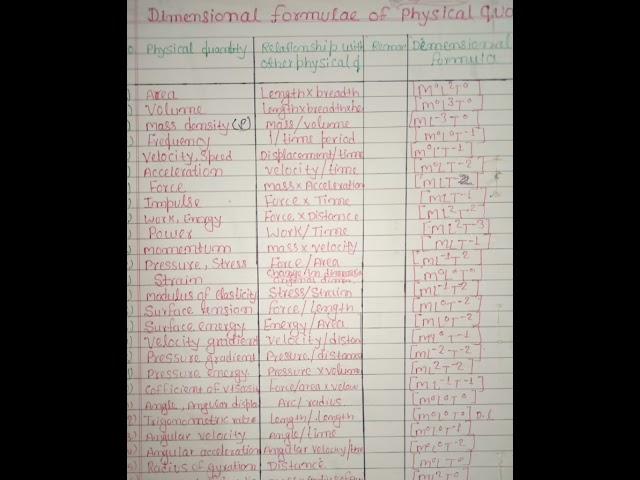 Dimensional formulae of Physical Qua
o. Physical quantity Relationship with other physical q Demensional formula
Area Length x breadth [M⁰L²T⁰]
Volume Length x breadth x he [M⁰L³T⁰]
Mass density (ρ) mass/volume [ML⁻³T⁰]
Frequency 1/time period [M⁰L⁰T⁻¹]
Velocity, Speed Displacement/time [M⁰L¹T⁻¹]
Acceleration velocity/time [M⁰LT⁻²]
Force mass x Acceleration [MLT⁻²]
Impulse Force x Time [MLT⁻¹]
Work, Energy Force x Distance [ML²T⁻²]
Power Work/Time [ML²T⁻³]
momentum mass x velocity [MLT⁻¹]
Pressure, Stress Force/Area [ML⁻¹T⁻²]
Strain Change in dimension [M⁰L⁰T⁰]
modulus of elasticity Stress/Strain [ML⁻¹T⁻²]
Surface tension force/length [ML⁰T⁻²]
Surface energy Energy/Area [ML⁰T⁻²]
Velocity gradient velocity/distan [M⁰L⁰T⁻¹]
Pressure gradient Pressure/distance [ML⁻²T⁻²]
Pressure energy Pressure x volume [ML²T⁻²]
Cofficient of viscosity Force/area x veloc [ML⁻¹T⁻¹]
Angle, Angular displa Arc/radius [M⁰L⁰T⁰]
Trigonometric ratio length/length [M⁰L⁰T⁰]
Angular velocity Angle/time [M⁰L⁰T⁻¹]
Angular acceleration Angular velocity/time [M⁰L⁰T⁻²]
Radius of gyration Distance [M⁰LT⁰]
[M²T⁰]